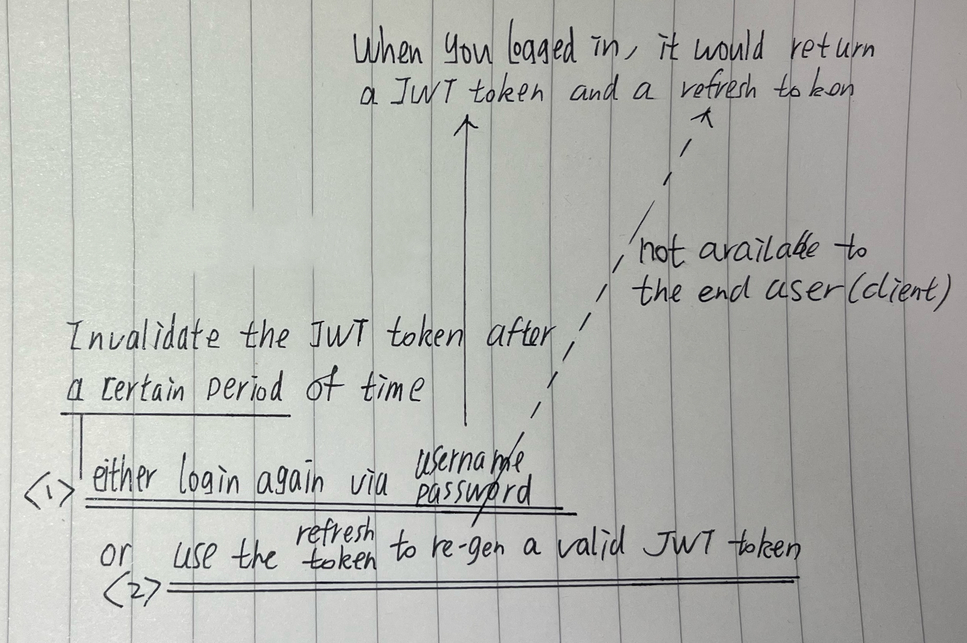 When you logged in, it would return
a JWT token and a refresh token
not available to
the end user (client)
Invalidate the JWT token after
a certain period of time
<1> either login again via username password
or use the refresh token to re-gen a valid JWT token
<2>